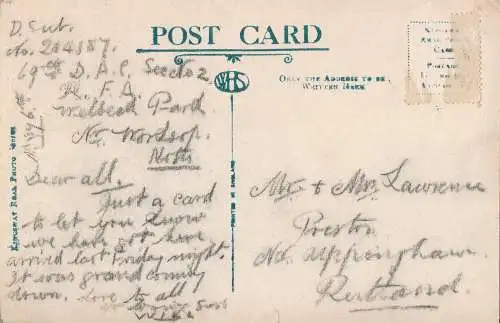 D. Sub.
No. 204887.
69th D.A.C. Sec No 2
R. F. A.
Welbeck Park
Nr Worksop.
Notts
Dear all.
Just a card
to let you know
we have got here
arrived last Friday night.
It was grand coming
down. Love to all
POST CARD
WHS
ONLY THE ADDRESS TO BE
WRITTEN HERE
KINGSWAY REAL PHOTO SERIES
PRINTED IN ENGLAND
Mr & Mrs Lawrence
Preston
Nr Uppingham
Rutland.